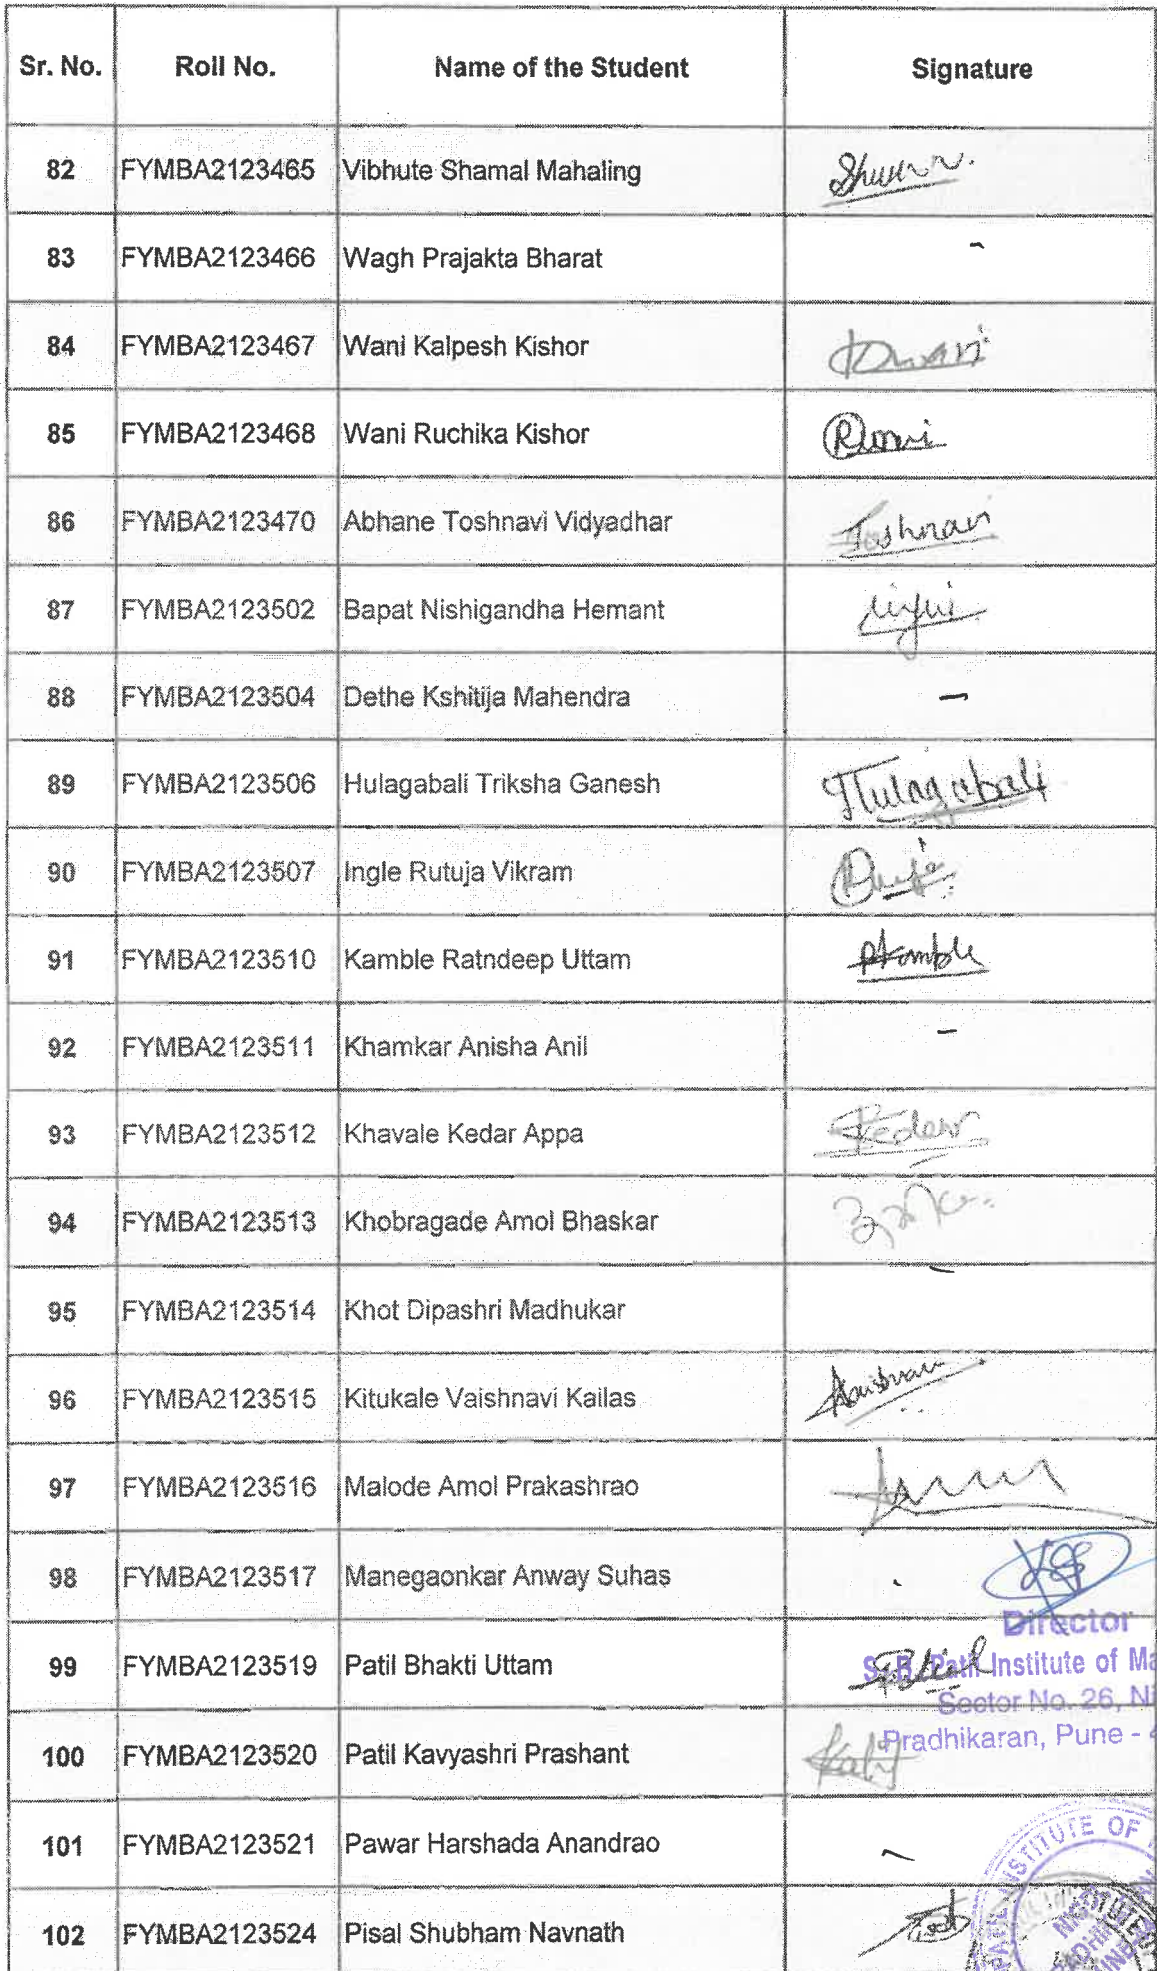 Sr. No. Roll No. Name of the Student Signature
82 FYMBA2123465 Vibhute Shamal Mahaling
83 FYMBA2123466 Wagh Prajakta Bharat -
84 FYMBA2123467 Wani Kalpesh Kishor
85 FYMBA2123468 Wani Ruchika Kishor
86 FYMBA2123470 Abhane Toshnavi Vidyadhar Toshnavi
87 FYMBA2123502 Bapat Nishigandha Hemant
88 FYMBA2123504 Dethe Kshitija Mahendra -
89 FYMBA2123506 Hulagabali Triksha Ganesh Hulagabali
90 FYMBA2123507 Ingle Rutuja Vikram
91 FYMBA2123510 Kamble Ratndeep Uttam RKamble
92 FYMBA2123511 Khamkar Anisha Anil -
93 FYMBA2123512 Khavale Kedar Appa Kedar
94 FYMBA2123513 Khobragade Amol Bhaskar
95 FYMBA2123514 Khot Dipashri Madhukar -
96 FYMBA2123515 Kitukale Vaishnavi Kailas
97 FYMBA2123516 Malode Amol Prakashrao
98 FYMBA2123517 Manegaonkar Anway Suhas
Director
99 FYMBA2123519 Patil Bhakti Uttam
S. B. Patil Institute of Ma
Sector No. 26, Ni
100 FYMBA2123520 Patil Kavyashri Prashant
Pradhikaran, Pune - 4
101 FYMBA2123521 Pawar Harshada Anandrao -
INSTITUTE OF
102 FYMBA2123524 Pisal Shubham Navnath